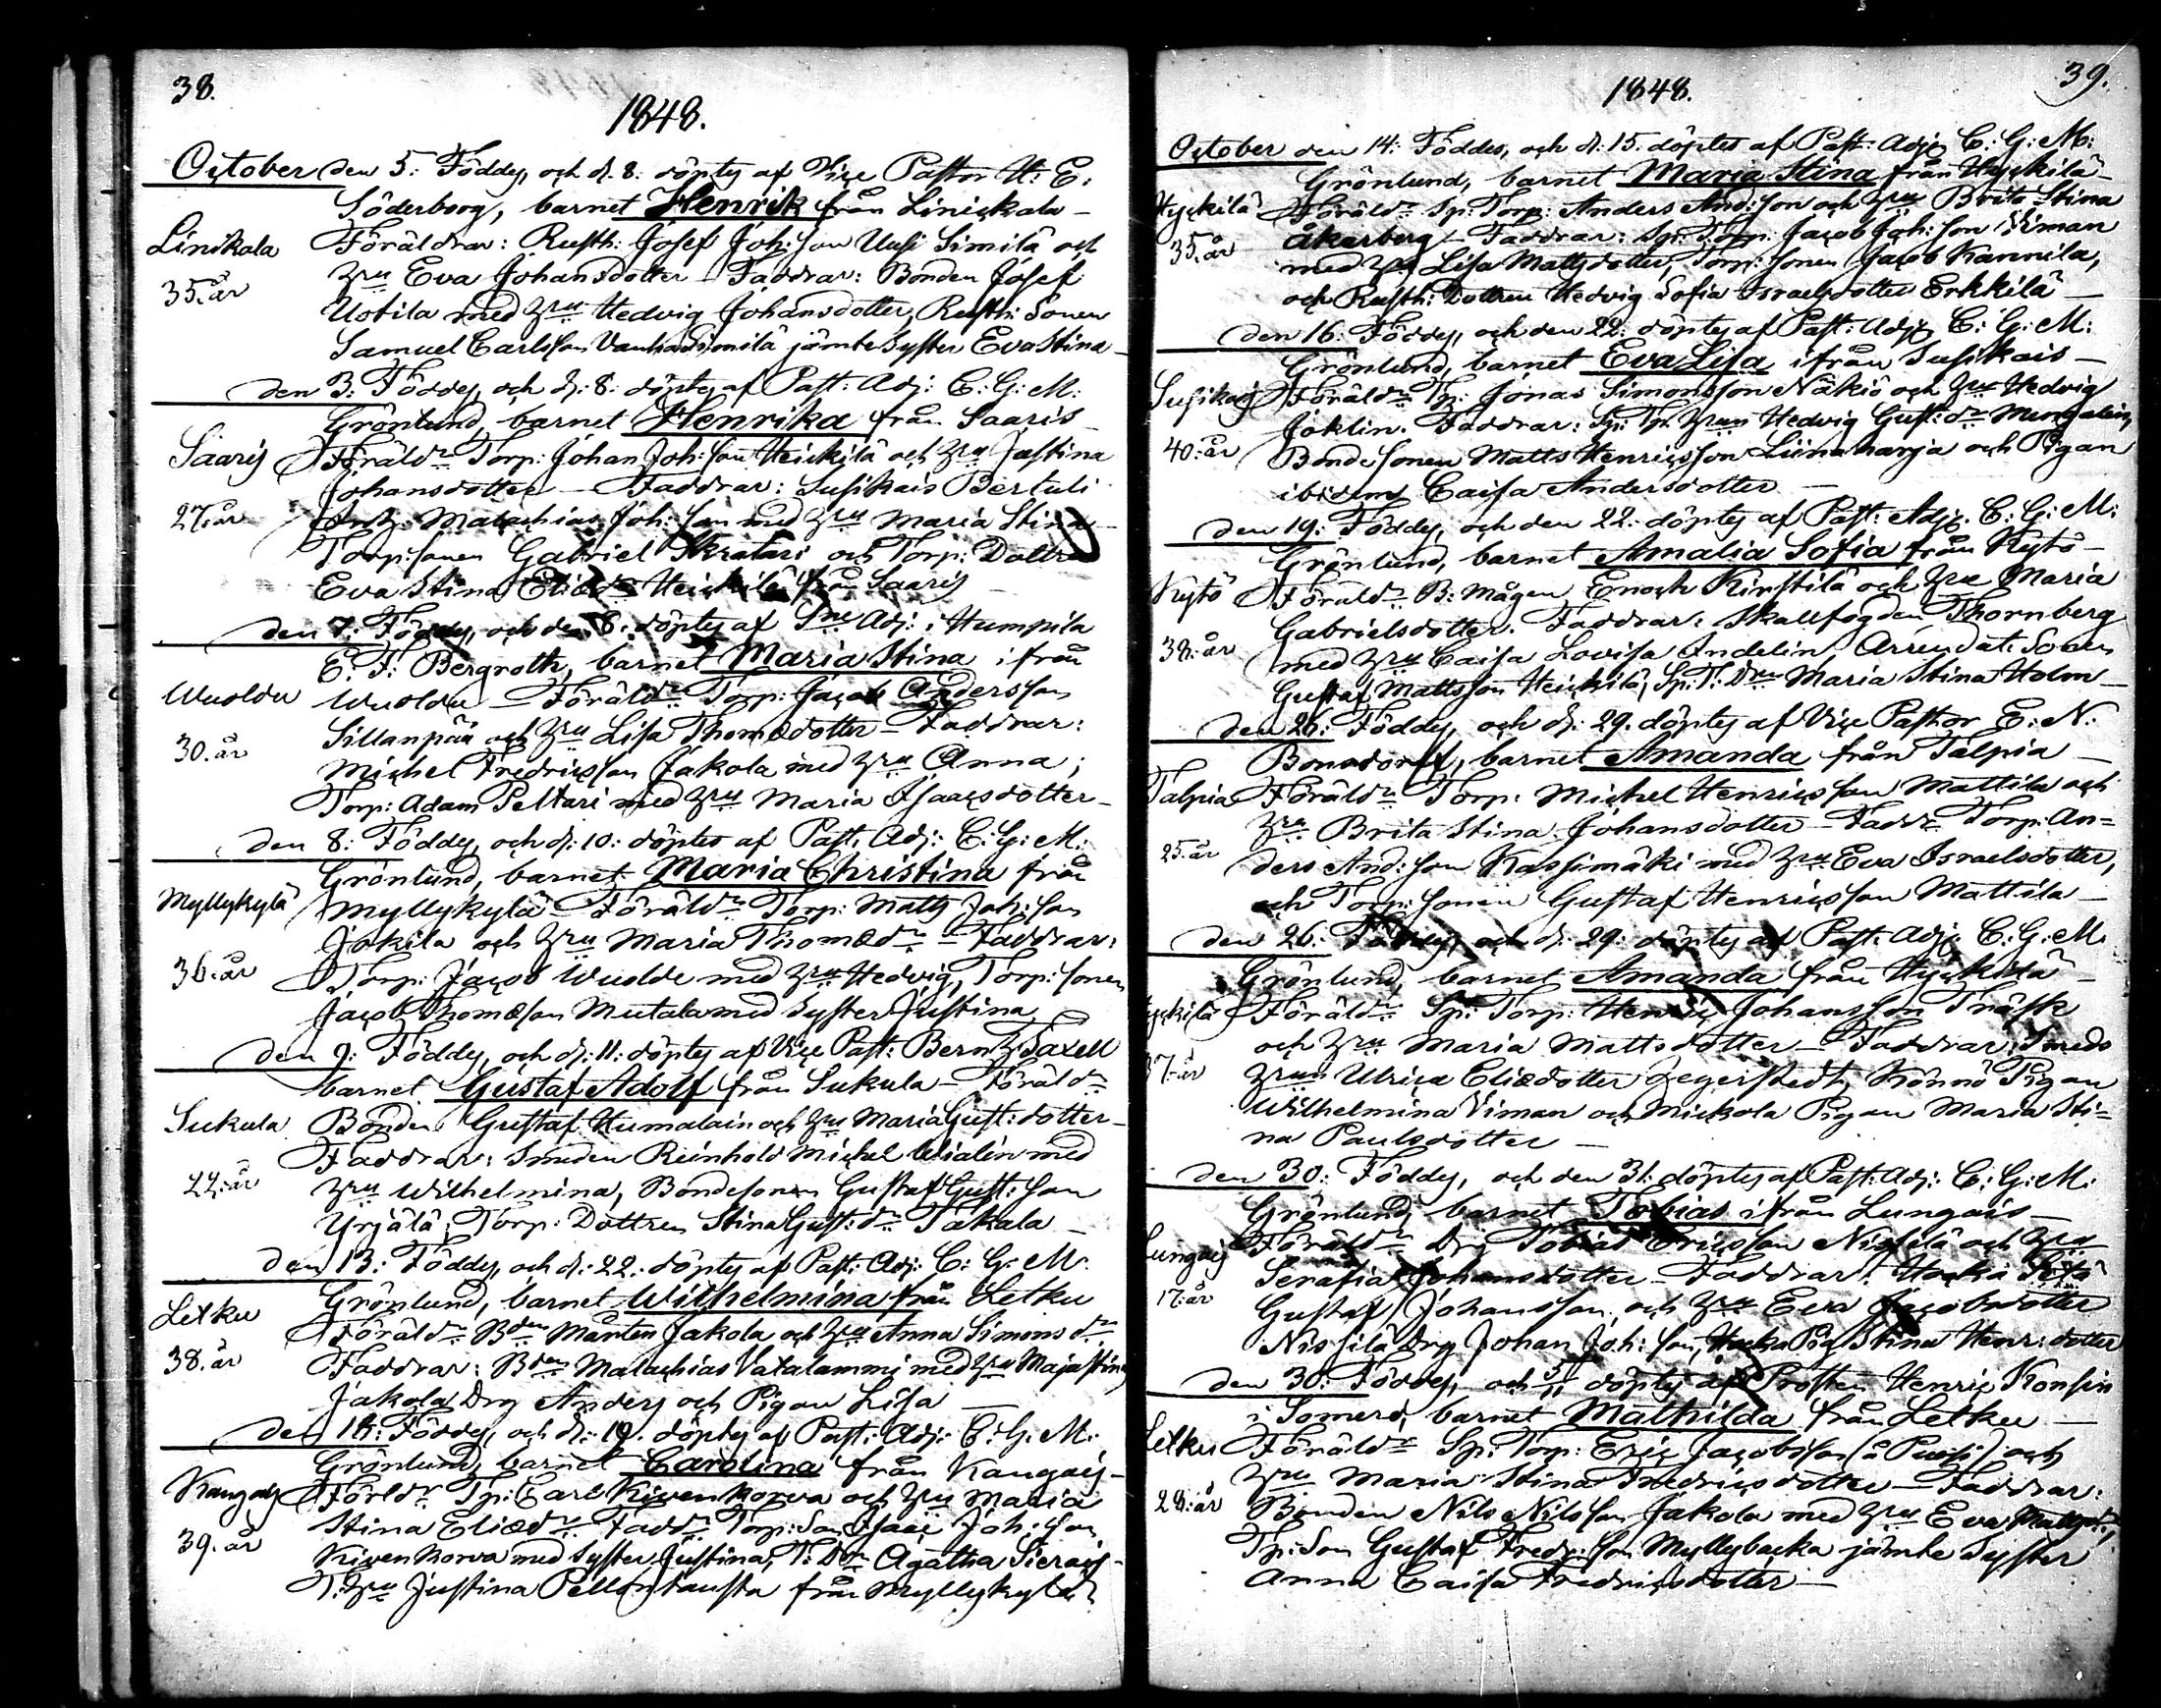 38.
1848.
October den 5: Föddes, och d. 8: döptes af Vice Pastor H: E:
Söderborg, barnet Henrik från Linickala –
Linikala
Föräldrar: Rusth: Josef Joh: son Uusi Simila och
Hru Eva Johansdotter – Faddrar: Bonden Josef
35. år
Uotila med Hru Hedvig Johansdotter, Rusth: Sonen
Samuel Carlsson Vanha Simila jämte Syster Eva Stina –
den 3: Föddes, och d: 8: döptes af Past: Adj: C: G: M:
Grönlund, barnet Henrika från Saaris –
Saaris
Föräldr Torp: Johan Joh: son Heickilä och Hru Justina
Johansdotter – Faddrar: Susikais Bertuli
27. år
Malachias Joh: son med Hru Maria Stina –
Torp: sonen Gabriel Skratari och Torp: Dottren
Eva Stina Eliæ dr Heickilä från Saaris –
den 7: Föddes, och den 8: döptes af Adj: i Humpila
E. F: Bergroth, barnet Maria Stina ifrån
Wuoldu
Wuoldu – Föräldr Torp: Jacob Andersson
Sillanpää och Hru Lisa Thomædotter – Faddrar:
30. år
Michel Fredricsson Jakola med Hru Anna;
Torp: Adam Peltari med Hru Maria Isaacsdotter –
den 8: Föddes, och d: 10: döptes af Past: Adj: C: G: M:
Grönlund, barnet Maria Christina från
Myllykylä
Myllykylä – Föräldr Torp: Matts Joh: son
Jokila och Hru Maria Thomædr – Faddrar:
36: år
Torp: Jacob Wuolde med Hru Hedvig, Torp: sonen
Jacob Thomæson Mutala med Syster Justina
den 9: Föddes, och d: 11: döptes af Vice Past: Bernh: Saxell
barnet Gustaf Adolf från Sukula – Föräldr
Sukula
Bonden Gustaf Humalain och Hru Maria Gust: dotter –
Faddrar: Smeden Reinhold Michel Wialén med
22: år
Hru Wilhelmina, Bondesonen Gustaf Gust: son
Yrjälä, Torp: Dottren Stina Gust: dr Takala –
den 13: Föddes, och d: 22: döptes af Past: Adj: C: G: M:
Grönlund, barnet Wilhelmina från Letku
Letku
Föräldr Bden Mårten Jakola och Hru Anna Simons dr
38. år
Faddrar: Bden Malachias Vatalammi med Hru Maja Stina,
Jakola Drg Anders och Pigan Lisa –
den 14: Föddes, och d: 19. döptes af Past: Adj: C: G: M:
Grönlund, barnet Carolina från Kangais –
Kangais
Förldr Tp: Carl Kivenkorva och Hru Maria
Stina Eliædr Faddr Torp: Son Isaac Joh: son
39. år
Kivenkorva med Syster Justina, T: Dr Agatha Sierais –
T: Hru Justina Pellontausta från Myllykylä
39.
1848.
October den 14: Föddes, och d: 15. döptes af Past: Adj: C: G: M:
Grönlund, barnet Maria Stina från Hyckilä –
Hyckilä
Föräldr Sp: Torp: Anders And: son och Hru Brita Stina
35. år
Åkerberg – Faddrar: Sp: Torp: Jacob Joh: son Viman
med Hru Lisa Mattsdotter, Torp: sonen Jacob Kannila,
och Rusth: Dottren Hedvig Sofia Israelsdotter Erkkilä –
den 16: Föddes, och den 22: döptes af Past: Adj: C: G: M:
Grönlund, barnet Eva Lisa ifrån Susikais –
Susikais
Föräldr Tp: Jonas Simonsson Näkiö och Hru Hedvig
Jöklin. Faddrar: Sp: Tp: Hrun Hedvig Gust: dr
40: år
Bondesonen Matts Henricsson Liinaharja och Pigan
ibidem Caisa Andersdotter –
den 19: Föddes, och den 22: döptes af Past: Adj: C: G: M:
Grönlund, barnet Amalia Sofia från Kytö –
Kytö
Föräldr B: mågen Enoch Kinstilä och Hru Maria
Gabrielsdotter. Faddrar: Skallfogden Thornberg
38: år
med Hru Caisa Lovisa Indelin, Arrendat: Sonen
Gustaf Mattsson Heickilä, Sp: T: Dr Maria Stina Holm –
den 26: Föddes, och d: 29. döptes af Vice Pastor E: N:
Bonsdorff, barnet Amanda från Talpia –
Talpia
Föräldr Torp: Michel Henricsson Mattila och
Hru Brita Stina Johansdotter – Faddr Torp: An=
25. år
ders And: son Kassimäki med Hru Eva Israelsdotter,
och Torp: sonen Gustaf Henricsson Mattila –
den 26: Föddes, och d: 29: döptes af Past: Adj: C: G: M:
Grönlund, barnet Amanda från Hyckilä –
Föräldr Sp: Torp: Henric Johansson Träsk
och Hru Maria Mattsdotter – Faddrar: Smeds
37: år
Hrun Ulrica Eliædotter Zegerstedt, Könnö Pigan
Wilhelmina Viman och Mickola Pigan Maria Sti=
na Paulsdotter –
den 30: Föddes, och den 31: döptes af Past: Adj: C: G: M:
Grönlund, barnet Tobias ifrån Lungais –
Lungais
Föräldr Drg Tobias Ericsson Nissilä och Hru
Serafia Johansdotter – Faddrar:
17: år
Gustaf Johansson och Hru Eva Jacobsdotter
Nissilä Drg Johan Joh: son, Pig Stina Henr: dotter
den 30: Föddes, och 31 döptes af Prosten Henric Konsin
i Somero, barnet Mathilda från Letku –
Letku
Föräldr Sp: Torp: Eric Jacobsson (å) och
Hru Maria Stina Fredricsdotter – Faddrar:
28: år
Bonden Nils Nilsson Jakola med Hru Eva
Tp: Son Gustaf Fredr: son Myllybacka jämte Syster
Anna Caisa Fredricsdotter –